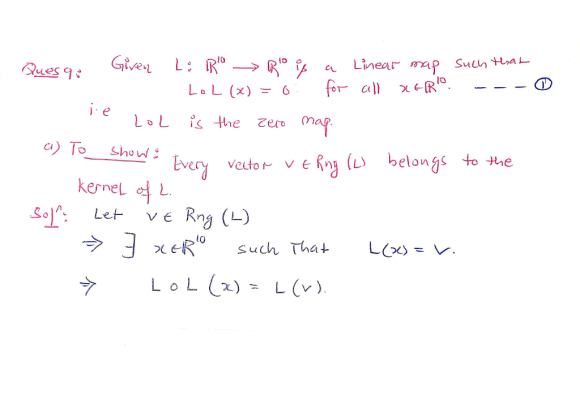 Ques 9: Given L: ℝ¹⁰ → ℝ¹⁰ is a Linear map such that
L∘L (x) = 0 for all x ∈ ℝ¹⁰. - - - ①
i.e L∘L is the zero map.
a) To show: Every vector v ∈ Rng (L) belongs to the
kernel of L.
Solⁿ: Let v ∈ Rng (L)
⇒ ∃ x ∈ ℝ¹⁰ such That L(x) = v.
⇒ L∘L (x) = L(v).